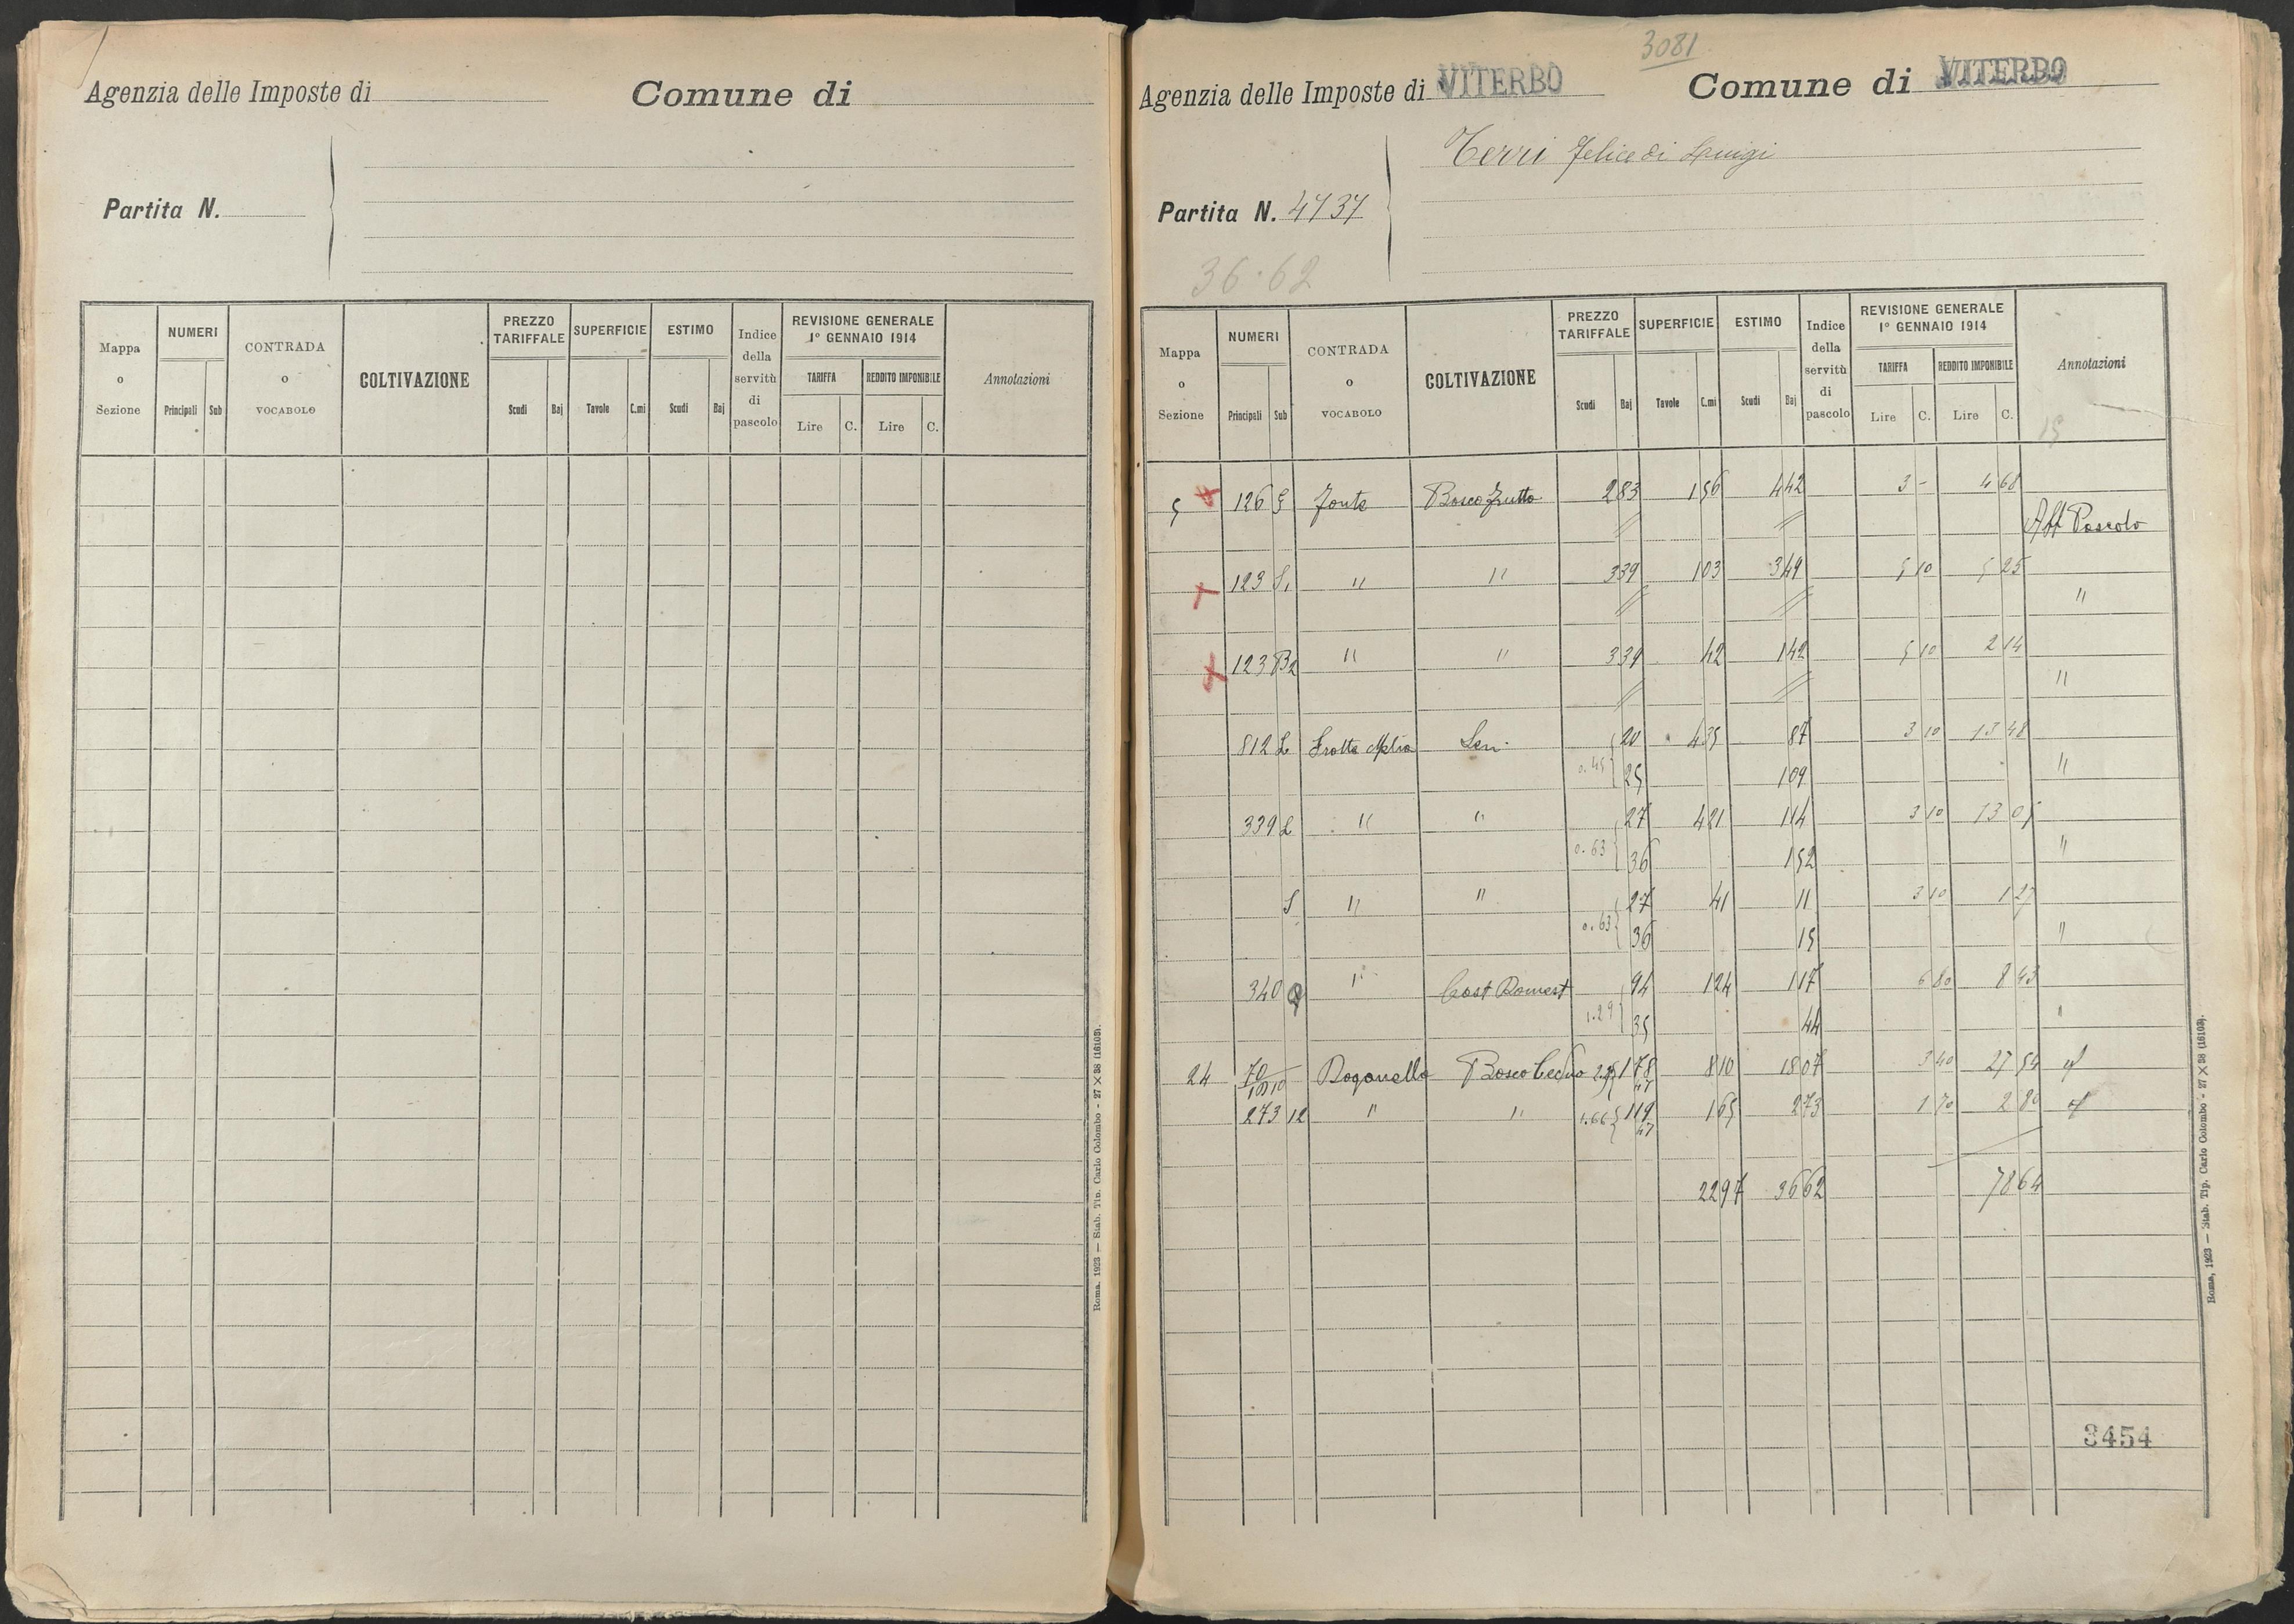 Agenzia delle Imposte di
Comune di
Partita N.
Mappa o Sezione | NUMERI Principali Sub | CONTRADA o VOCABOLO | COLTIVAZIONE | PREZZO TARIFFALE Scudi Baj | SUPERFICIE Tavole C.mi | ESTIMO Scudi Baj | Indice della servitù di pascolo | REVISIONE GENERALE 1° GENNAIO 1914 TARIFFA Lire C. REDDITO IMPONIBILE Lire C. | Annotazioni
Roma, 1923 — Stab. Tip. Carlo Colombo - 27 × 38 (16103).
3081
Agenzia delle Imposte di VITERBO
Comune di VITERBO
Terri Felice di Luigi
Partita N. 4737
36.62
Mappa o Sezione | NUMERI Principali Sub | CONTRADA o VOCABOLO | COLTIVAZIONE | PREZZO TARIFFALE Scudi Baj | SUPERFICIE Tavole C.mi | ESTIMO Scudi Baj | Indice della servitù di pascolo | REVISIONE GENERALE 1° GENNAIO 1914 TARIFFA Lire C. REDDITO IMPONIBILE Lire C. | Annotazioni
15
5 126 Fonte Bosco frutto 2 83 1 56 4 42 3 - 4 68
Aff Pascolo
123 " " 3 39 1 03 3 49 5 10 5 25
"
123 B2 " " 3 39 42 1 42 5 10 2 14
"
812 L Sem. 20 4 35 87 3 10 13 48
0.45 25 1 09 "
339 L " " 27 4 21 1 14 3 10 13 05
0.63 36 1 52 "
" " 27 41 11 3 10 1 27
0.63 36 15 "
340 " Cast Domest 94 1 24 1 17 6 80 8 43
1.29 35 44 "
24 70 Bosco Ceduo 1 78 8 10 18 07 3 40 27 54
47
273 12 " " 1.66 1 19 1 65 2 73 1 70 2 80
47
22 97 36 62 78 64
3454
Roma, 1923 — Stab. Tip. Carlo Colombo - 27 × 38 (16103).